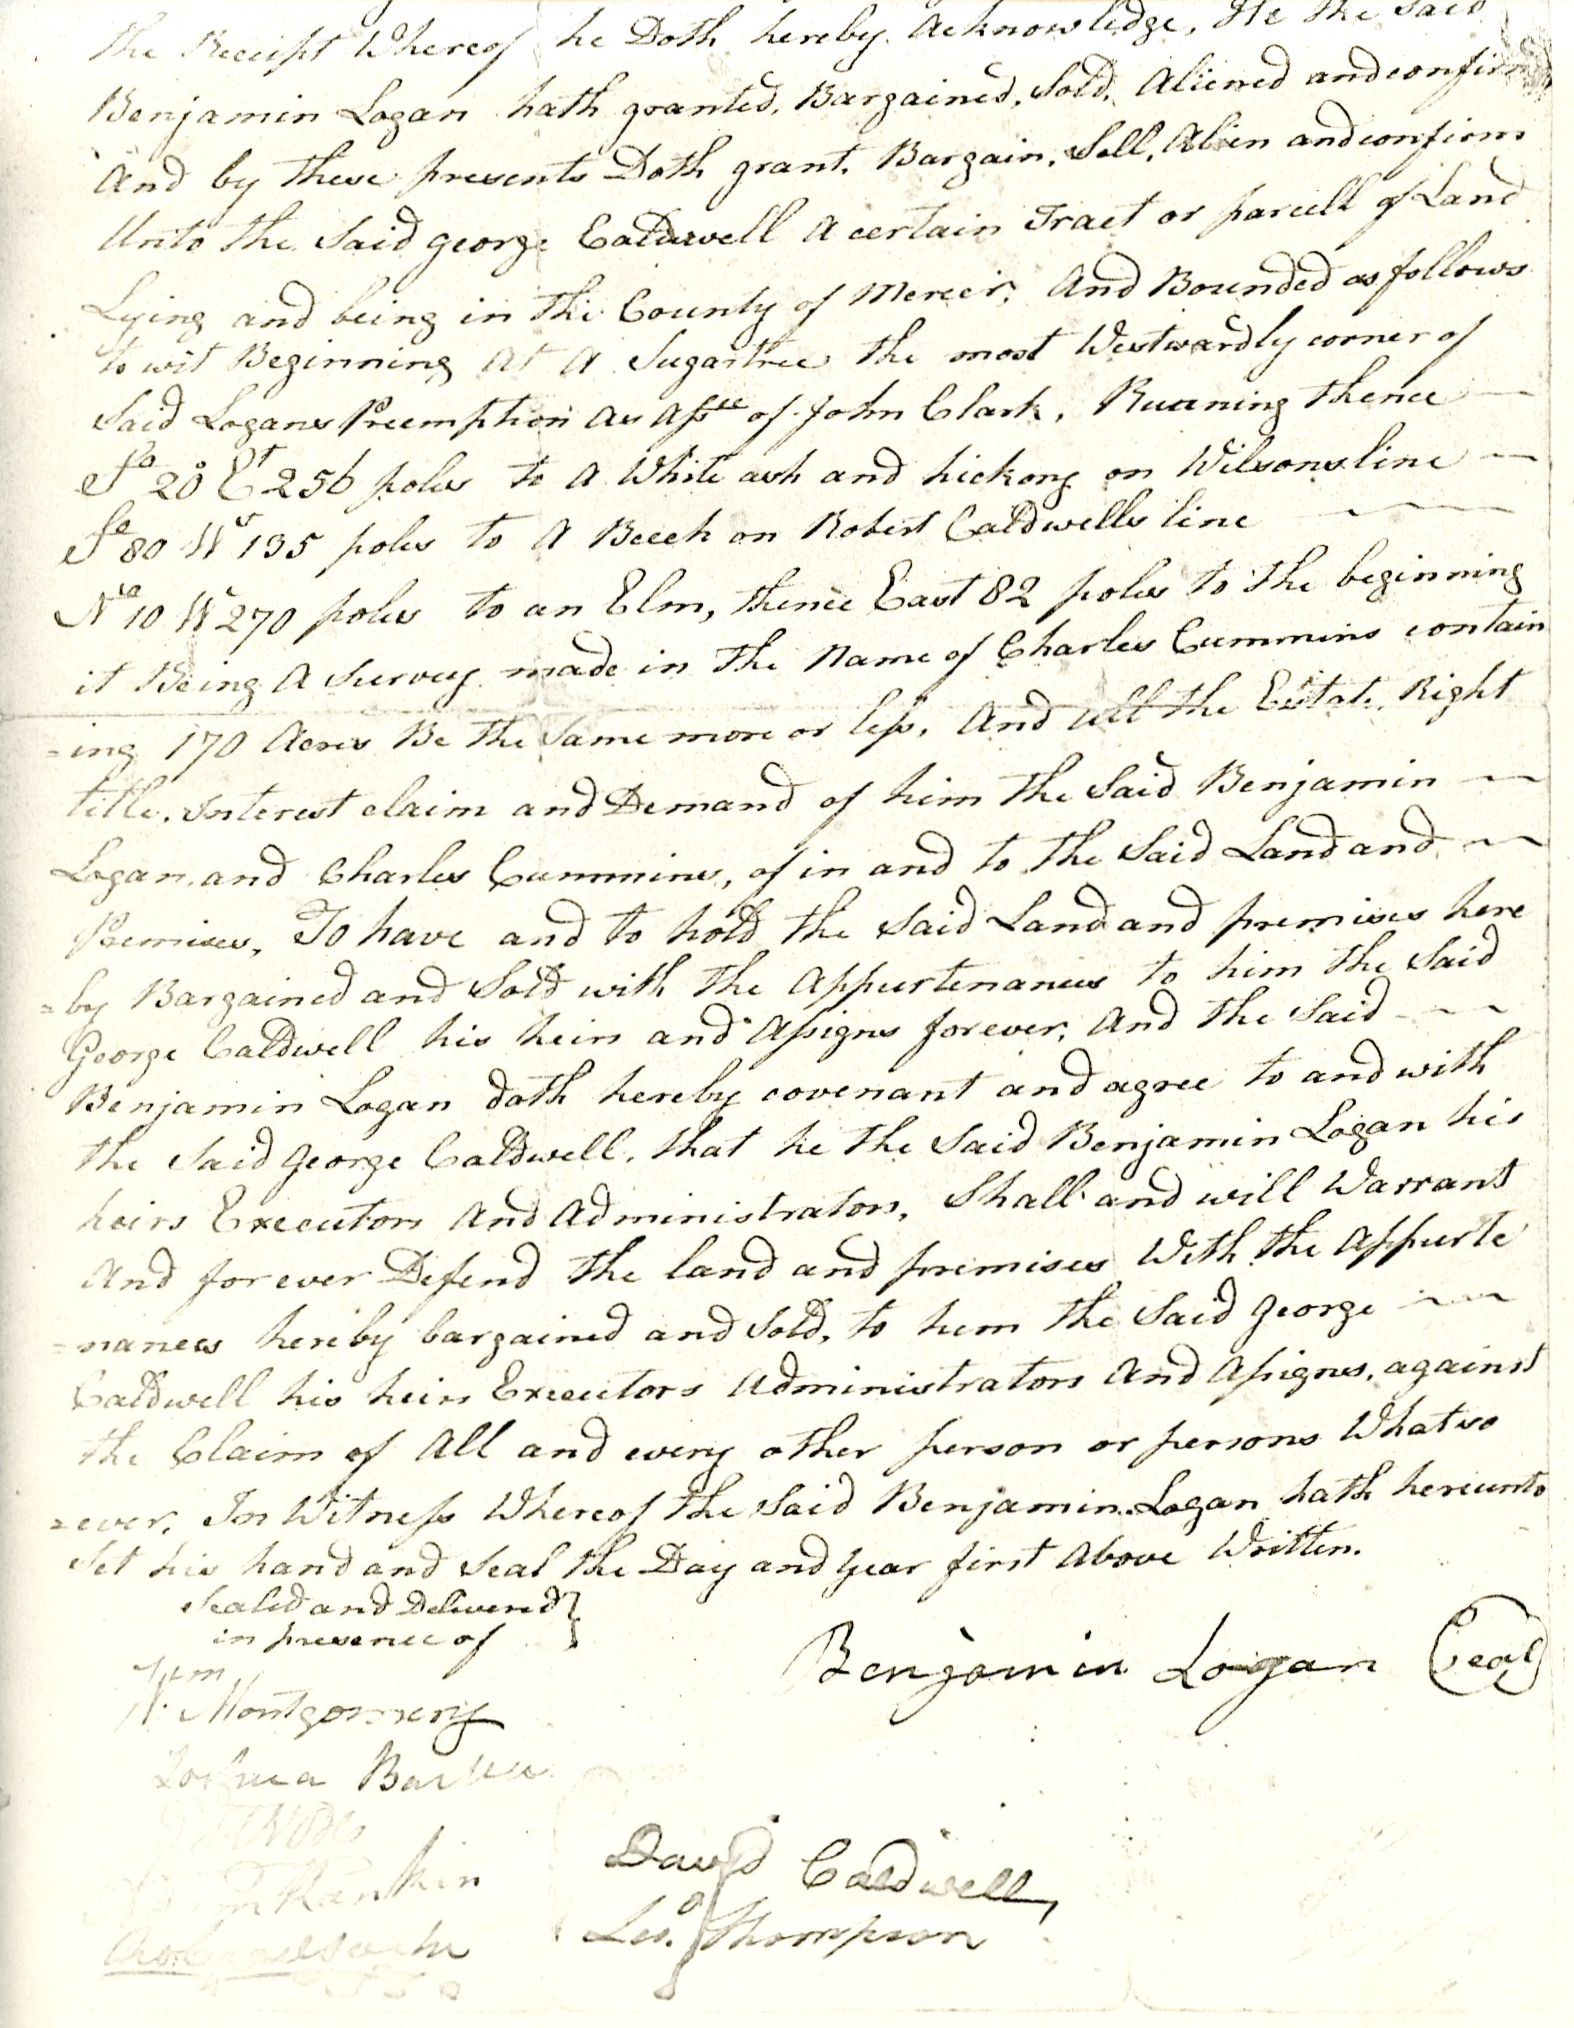 the Receipt Whereof he Doth hereby Acknowledge, He the Said
Benjamin Logan hath granted, Bargained, Sold, Aliened and confirm
And by these presents Doth grant, Bargain, Sell, Alien and confirm
Unto the Said george Caldwell A certain Tract or parcell of Land
Lying and being in the County of Mercer, And Bounded as follows
to wit Beginning At A Sugartree the most Westwardly corner of
Said Logans Preemption as Assee of John Clark, Running thence
So 20° Et 256 poles to A White ash and hickory on Wilsons line
So 80 Wt 135 poles to A Beech on Robert Caldwells line
No 10 Wt 270 poles to an Elm, thence East 82 poles to the beginning
it Being A Survey made in the Name of Charles Cummins contain
=ing 170 Acres Be the Same more or less, And all the Estate, Right
title, Interest claim and Demand of him the Said Benjamin
Logan, and Charles Cummins, of in and to the Said Land and
Premises, To have and to hold the Said Land and premises here
=by Bargained and Sold with the Appurtenances to him the Said
George Caldwell his heirs and Assigns forever, And the Said
Benjamin Logan doth hereby covenant and agree to and with
the Said George Caldwell, that he the Said Benjamin Logan his
heirs Executors And Administrators, Shall and will Warrant
And for ever Defend the land and premises With the Appurte
=nances hereby bargained and Sold, to him the Said George
Caldwell his heirs Executors Administrators And Assigns, against
the Claim of All and every other person or persons Whatso
=ever, In Witness Whereof the Said Benjamin Logan hath hereunto
Set his hand and Seal the Day and year first Above Written.
Sealed and Delivered
in presence of
Benjamin Logan Seal
Wm
Montgomery
Joshua Barbee
Rankin
David Caldwell
Leo. Thompson